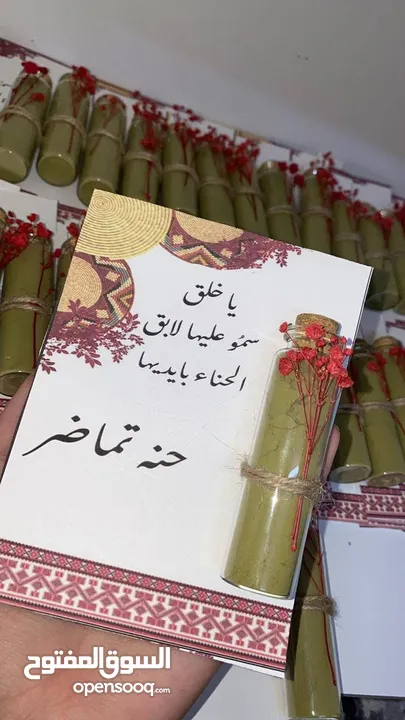 يا خلق
سمُو عليها لابق
الحناء بايديها
حنه تماضر
السوق المفتوح
opensooq.com